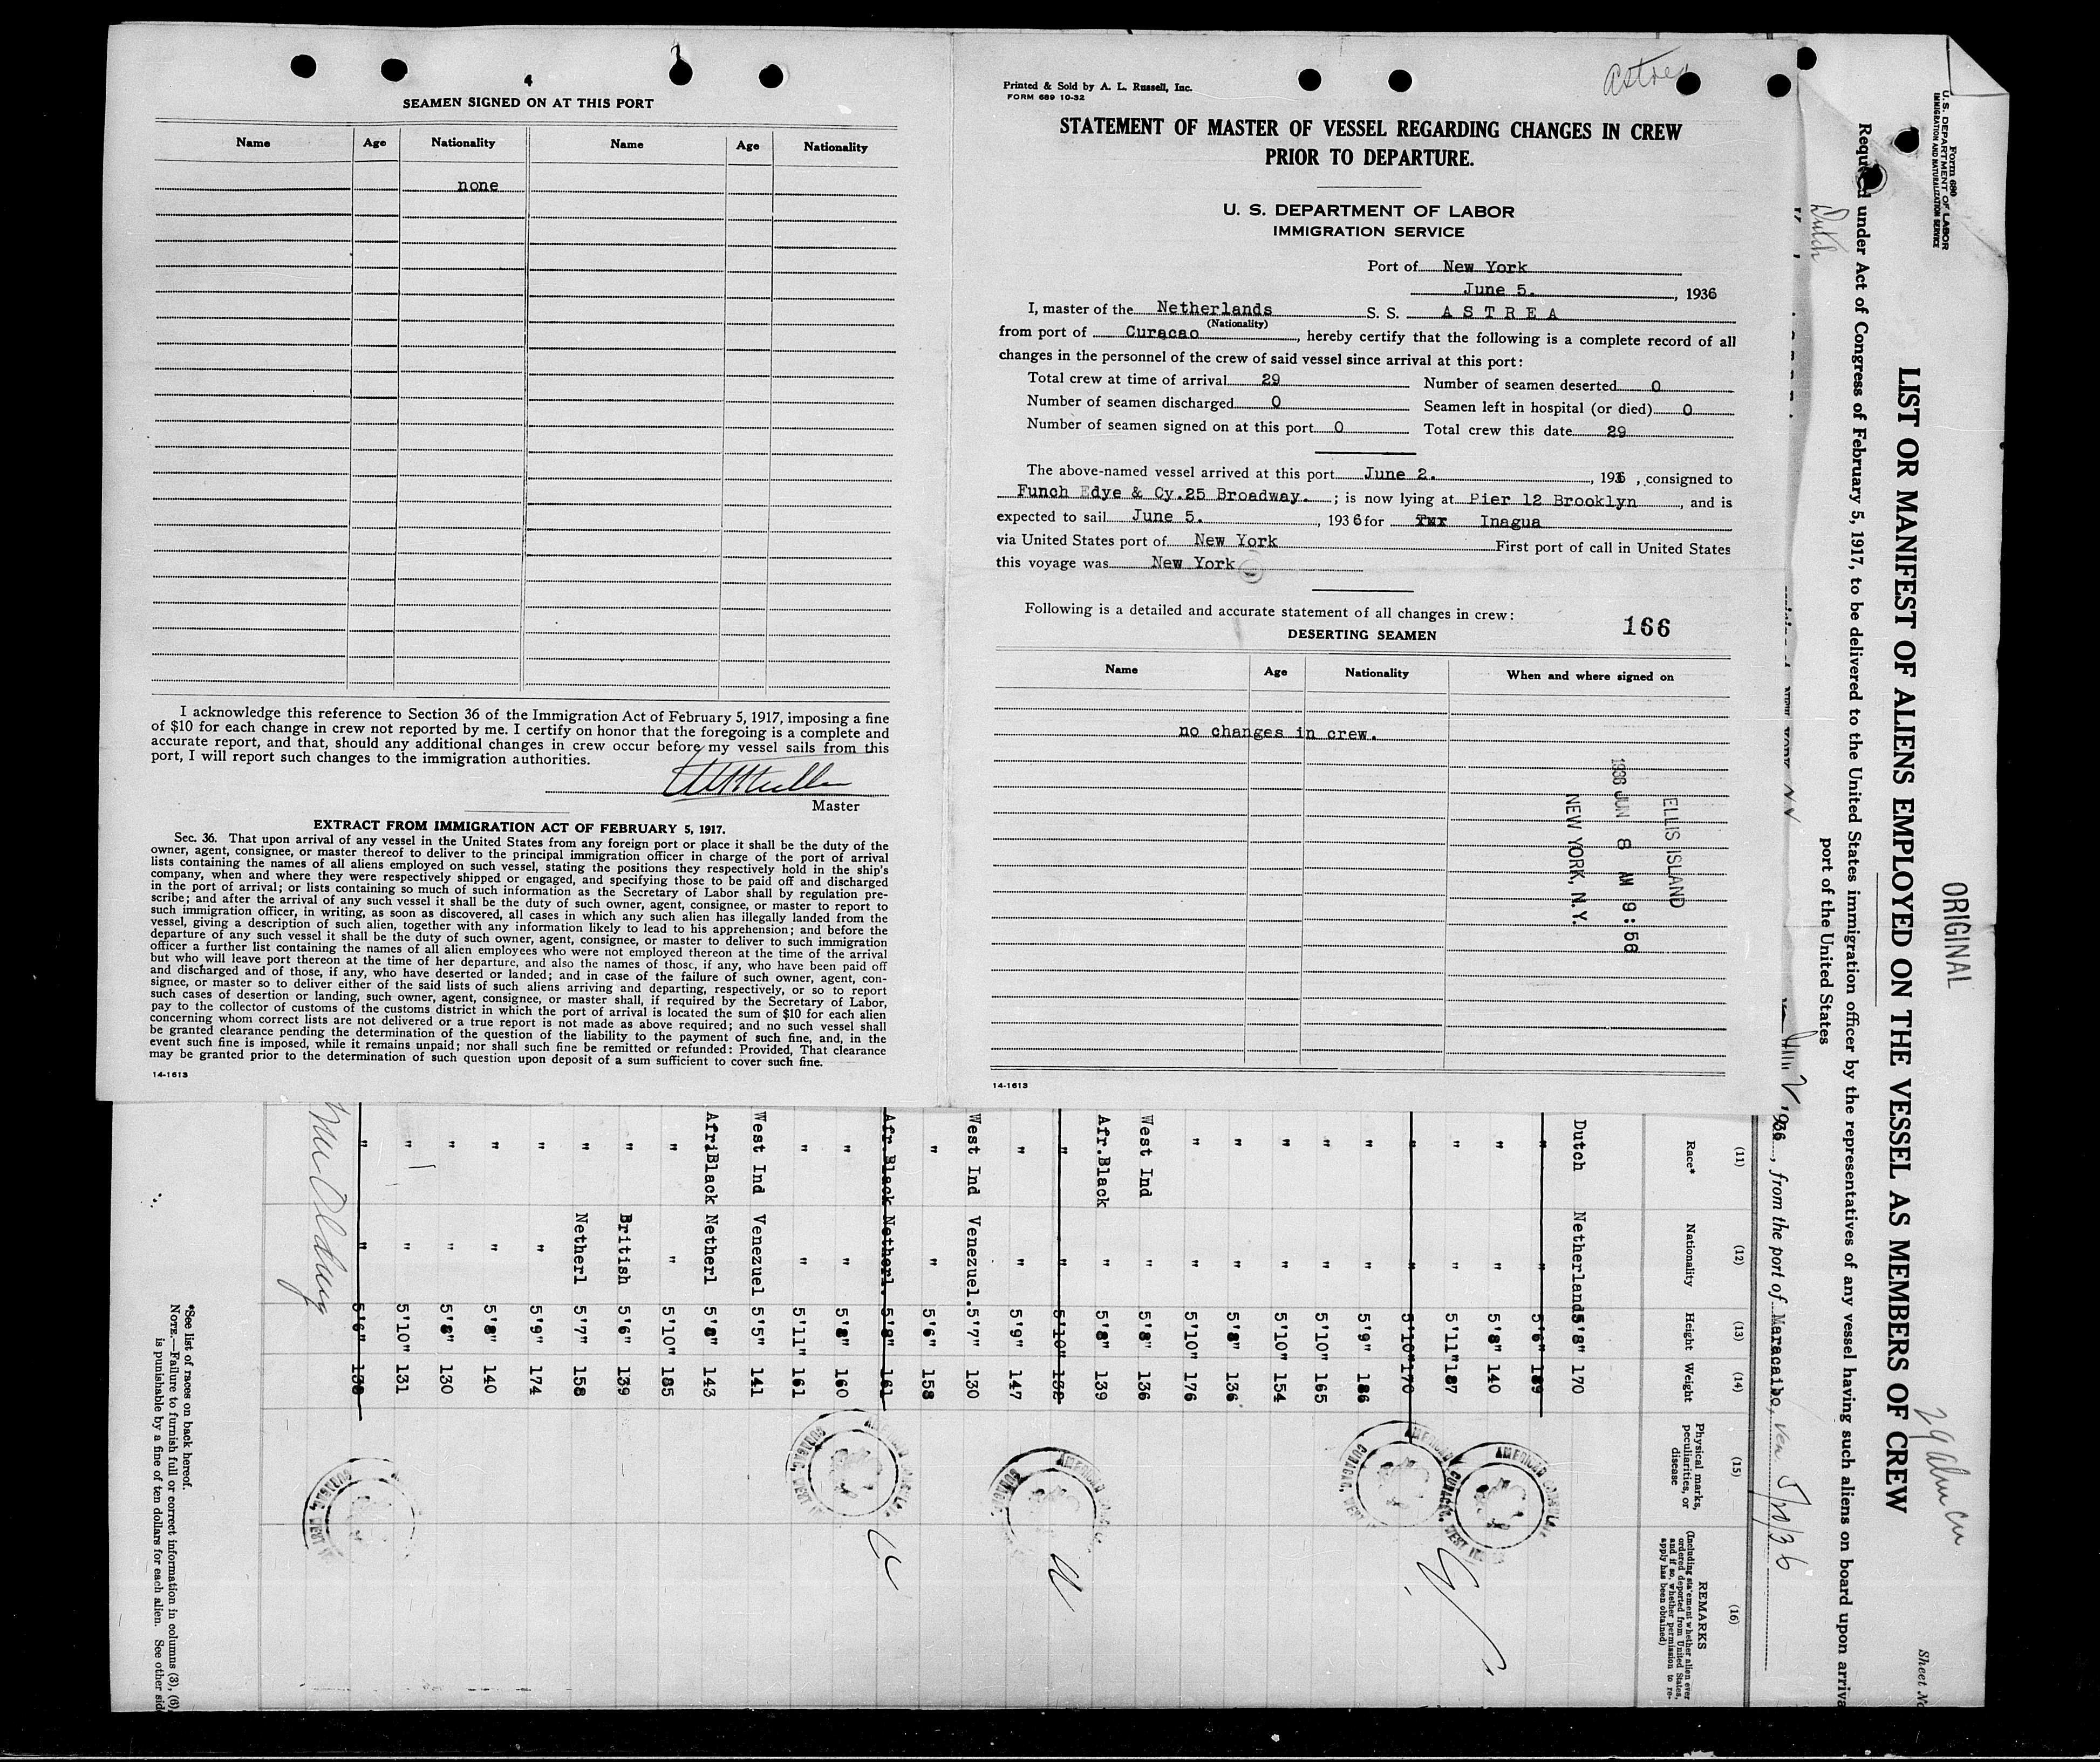 4
SEAMEN SIGNED ON AT THIS PORT
Name Age Nationality Name Age Nationality
none
I acknowledge this reference to Section 36 of the Immigration Act of February 5, 1917, imposing a fine
of $10 for each change in crew not reported by me. I certify on honor that the foregoing is a complete and
accurate report, and that, should any additional changes in crew occur before my vessel sails from this
port, I will report such changes to the immigration authorities.
Master
EXTRACT FROM IMMIGRATION ACT OF FEBRUARY 5, 1917.
Sec. 36. That upon arrival of any vessel in the United States from any foreign port or place it shall be the duty of the
owner, agent, consignee, or master thereof to deliver to the principal immigration officer in charge of the port of arrival
lists containing the names of all aliens employed on such vessel, stating the positions they respectively hold in the ship's
company, when and where they were respectively shipped or engaged, and specifying those to be paid off and discharged
in the port of arrival; or lists containing so much of such information as the Secretary of Labor shall by regulation pre-
scribe; and after the arrival of any such vessel it shall be the duty of such owner, agent, consignee, or master to report to
such immigration officer, in writing, as soon as discovered, all cases in which any such alien has illegally landed from the
vessel, giving a description of such alien, together with any information likely to lead to his apprehension; and before the
departure of any such vessel it shall be the duty of such owner, agent, consignee, or master to deliver to such immigration
officer a further list containing the names of all alien employees who were not employed thereon at the time of the arrival
but who will leave port thereon at the time of her departure, and also the names of those, if any, who have been paid off
and discharged and of those, if any, who have deserted or landed; and in case of the failure of such owner, agent, con-
signee, or master so to deliver either of the said lists of such aliens arriving and departing, respectively, or so to report
such cases of desertion or landing, such owner, agent, consignee, or master shall, if required by the Secretary of Labor,
pay to the collector of customs of the customs district in which the port of arrival is located the sum of $10 for each alien
concerning whom correct lists are not delivered or a true report is not made as above required; and no such vessel shall
be granted clearance pending the determination of the question of the liability to the payment of such fine, and, in the
event such fine is imposed, while it remains unpaid; nor shall such fine be remitted or refunded: Provided, That clearance
may be granted prior to the determination of such question upon deposit of a sum sufficient to cover such fine.
14-1613
Astrea
Printed & Sold by A. L. Russell, Inc.
FORM 689 10-32
STATEMENT OF MASTER OF VESSEL REGARDING CHANGES IN CREW
PRIOR TO DEPARTURE.
U. S. DEPARTMENT OF LABOR
IMMIGRATION SERVICE
Port of New York
June 5. , 1936
I, master of the Netherlands S. S. ASTREA
(Nationality)
from port of Curacao , hereby certify that the following is a complete record of all
changes in the personnel of the crew of said vessel since arrival at this port:
Total crew at time of arrival 29 Number of seamen deserted 0
Number of seamen discharged 0 Seamen left in hospital (or died) 0
Number of seamen signed on at this port 0 Total crew this date 29
The above-named vessel arrived at this port June 2. , 1936 , consigned to
Funch Edye & Cy.25 Broadway. ; is now lying at Pier 12 Brooklyn , and is
expected to sail June 5. , 1936 for Inagua
via United States port of New York First port of call in United States
this voyage was New York
Following is a detailed and accurate statement of all changes in crew:
166
DESERTING SEAMEN
Name Age Nationality When and where signed on
no changes in crew.
ELLIS ISLAND
1936 JUN 8 AM 9:56
NEW YORK, N.Y.
14-1613
Form 680
U. S. DEPARTMENT OF LABOR
IMMIGRATION AND NATURALIZATION SERVICE
ORIGINAL
Sheet No
LIST OR MANIFEST OF ALIENS EMPLOYED ON THE VESSEL AS MEMBERS OF CREW
Required under Act of Congress of February 5, 1917, to be delivered to the United States immigration officer by the representatives of any vessel having such aliens on board upon arriva
port of the United States
Dutch
1936 , from the port of Maracaibo, Ven 5/20/36
(11) (12) (13) (14) (15) (16)
Race* Nationality Height Weight Physical marks, peculiarities, or disease REMARKS
(Including statement whether alien ever
ordered deported from United States,
and if so, whether permission to re-
apply has been obtained)
Dutch Netherlands 5'8" 170
" " 5'6" 189
" " 5'8" 140
" " 5'11" 187
" " 5'10" 170
" " 5'9" 186
" " 5'10" 165
" " 5'10" 154
" " 5'8" 136
" " 5'10" 176
West Ind " 5'8" 136
Afr.Black " 5'8" 139
" " 5'10" 138
" " 5'9" 147
West Ind Venezuel. 5'7" 130
" " 5'6" 158
Afr.Black Netherl. 5'8" 161
" " 5'8" 160
" " 5'11" 161
West Ind Venezuel 5'5" 141
AfriBlack Netherl 5'8" 143
" " 5'10" 185
" British 5'6" 139
" Netherl 5'7" 158
" " 5'9" 174
" " 5'8" 140
" " 5'8" 130
" " 5'10" 131
" " 5'6" 138
*See list of races on back hereof.
NOTE.—Failure to furnish full or correct information in columns (3), (6),
is punishable by a fine of ten dollars for each alien. See other sid